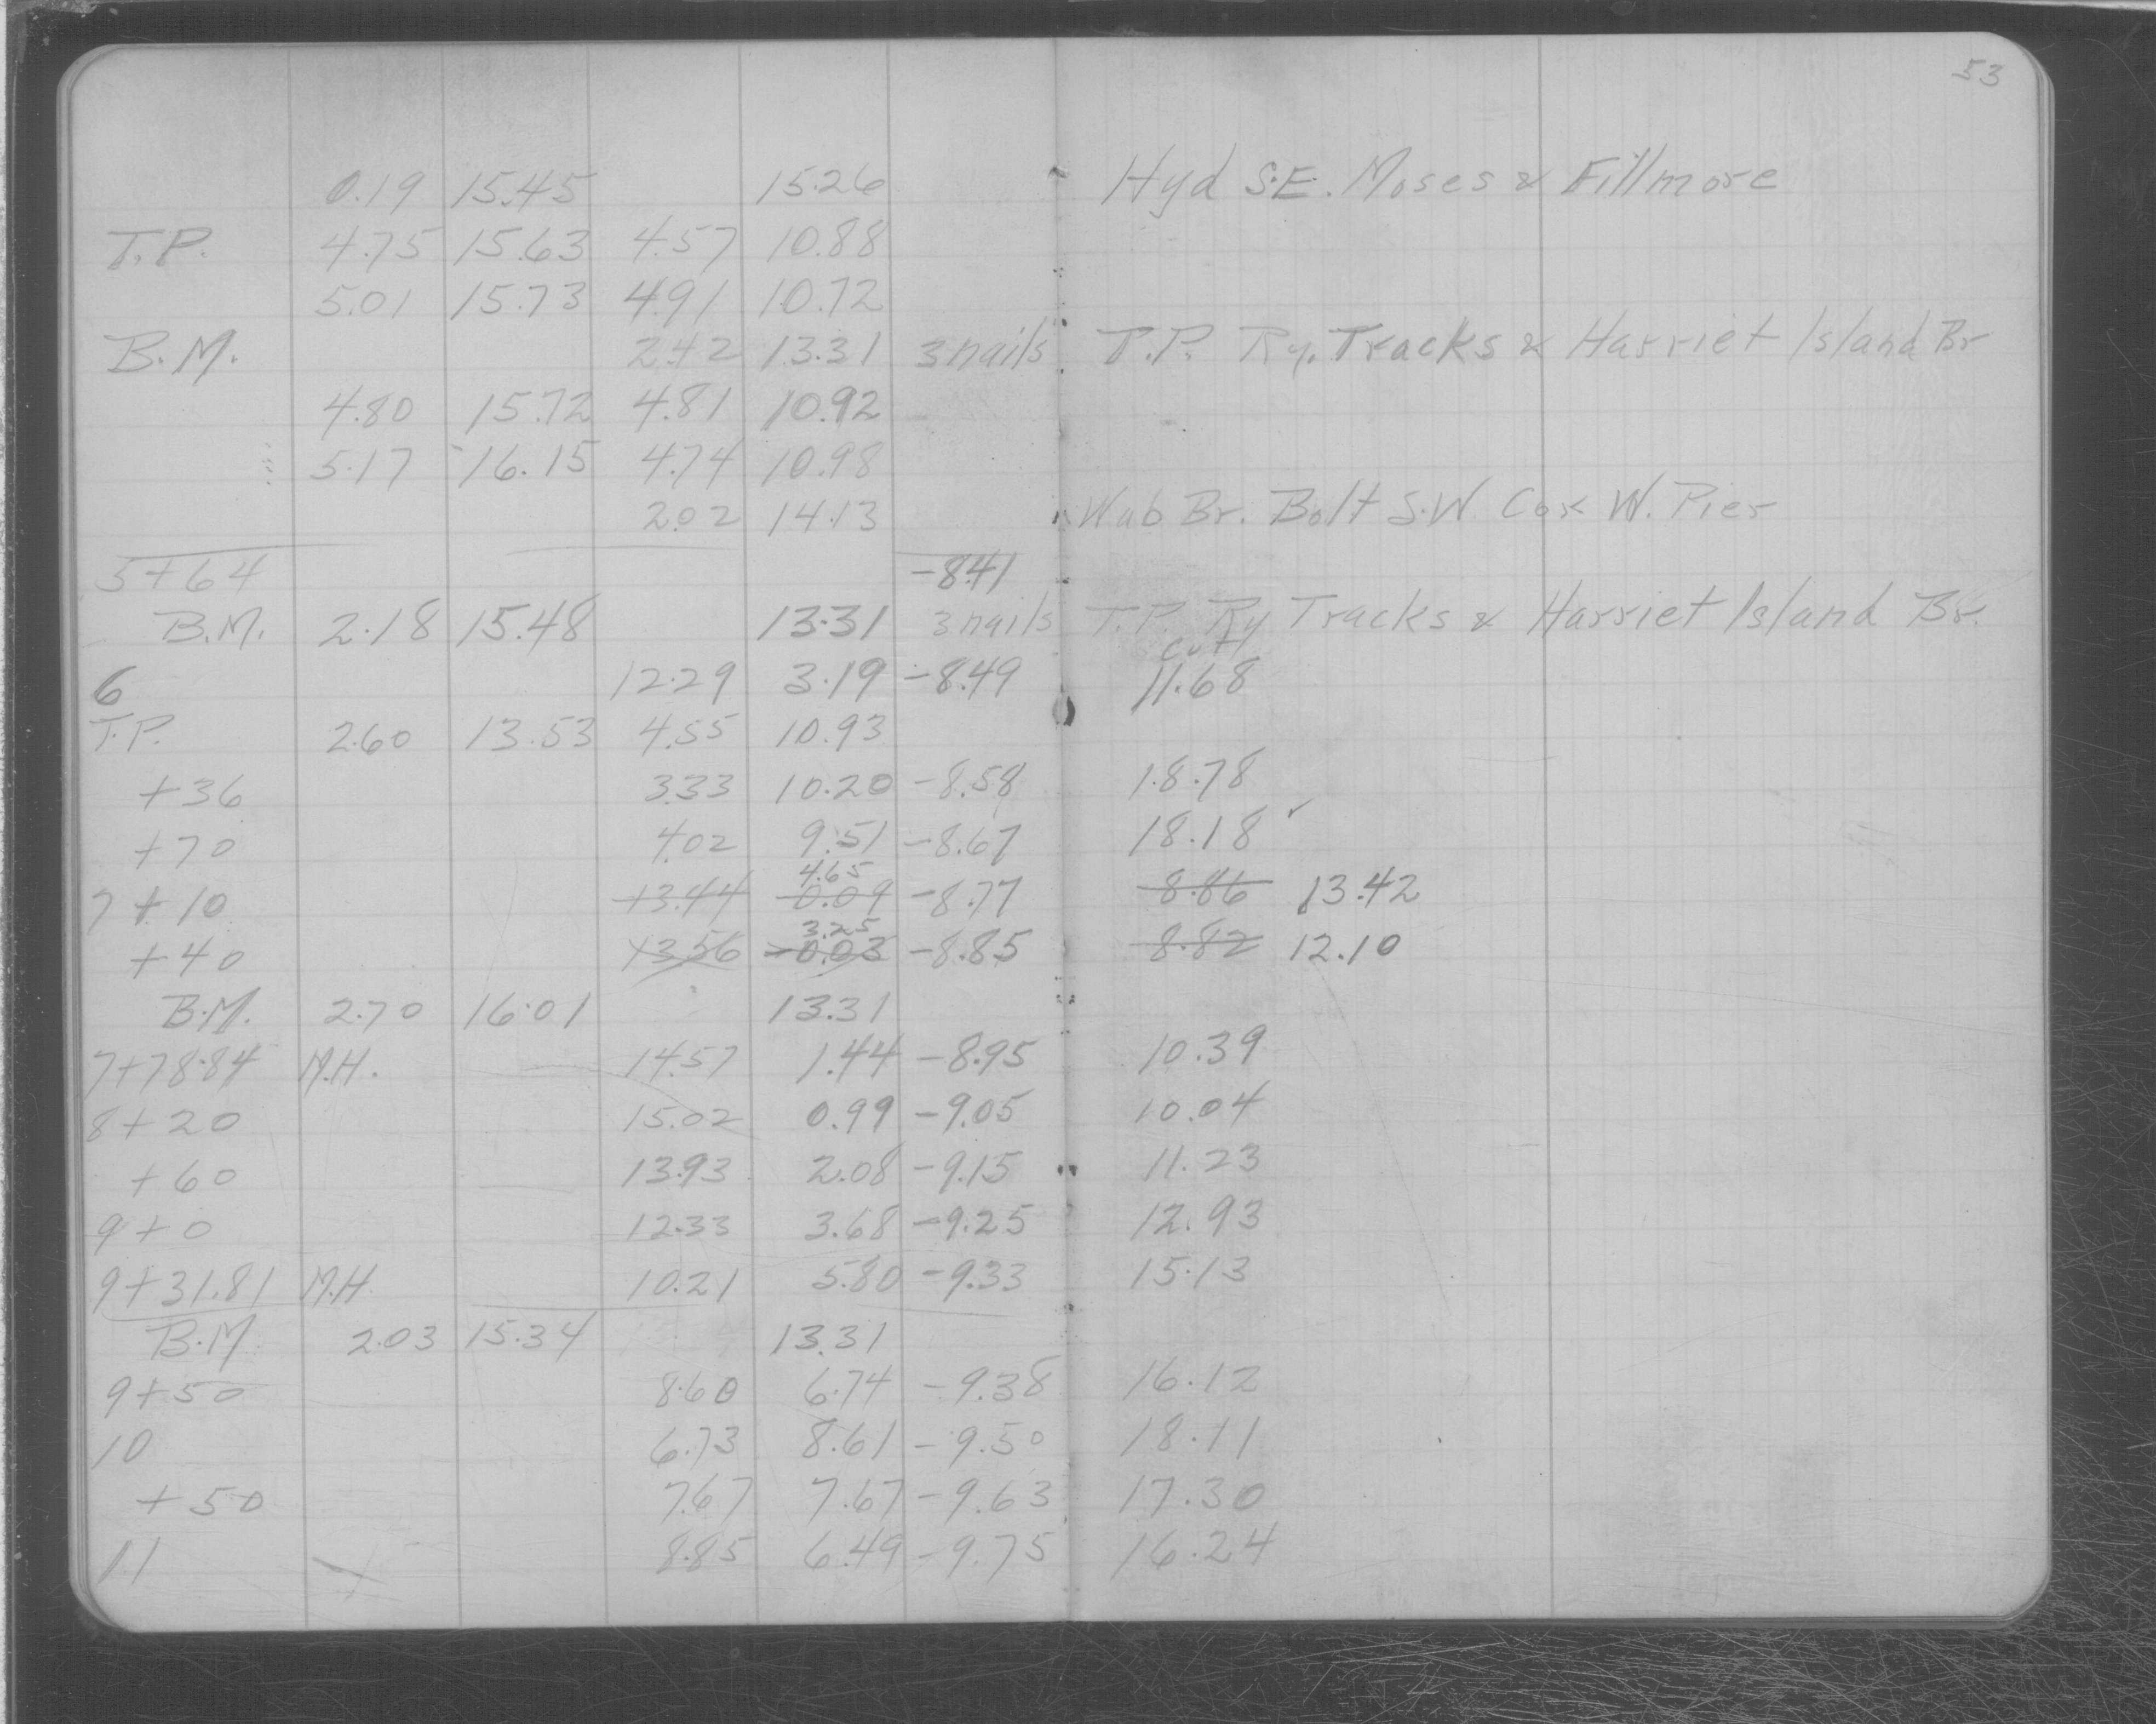 53
0.19 15.45 15.26 Hyd S.E. Moses & Fillmore
T.P. 4.75 15.63 4.57 10.88
5.01 15.73 4.91 10.72
B.M. 2.42 13.31 3 nails T.P. Ry. Tracks & Harriet Island Br
4.80 15.72 4.81 10.92
5.17 16.15 4.74 10.98
2.02 14.13 Wab Br. Bolt S.W. Cor W. Pier
5+64 -8.41
B.M. 2.18 15.48 13.31 3 nails T.P. Ry Tracks & Harriet Island Br.
cut
6 12.29 3.19 -8.49 11.68
T.P. 2.60 13.53 4.55 10.93
+36 3.33 10.20 -8.58 18.78
+70 4.02 9.51 -8.67 18.18
4.65
7+10 13.44 0.09 -8.77 8.86 13.42
3.25
+40 13.56 -0.03 -8.85 8.82 12.10
B.M. 2.70 16.01 13.31
7+78.84 M.H. 14.57 1.44 -8.95 10.39
8+20 15.02 0.99 -9.05 10.04
+60 13.93 2.08 -9.15 11.23
9+0 12.33 3.68 -9.25 12.93
9+31.81 M.H. 10.21 5.80 -9.33 15.13
B.M. 2.03 15.34 13.31
9+50 8.60 6.74 -9.38 16.12
10 6.73 8.61 -9.50 18.11
+50 7.67 7.67 -9.63 17.30
11 8.85 6.49 -9.75 16.24